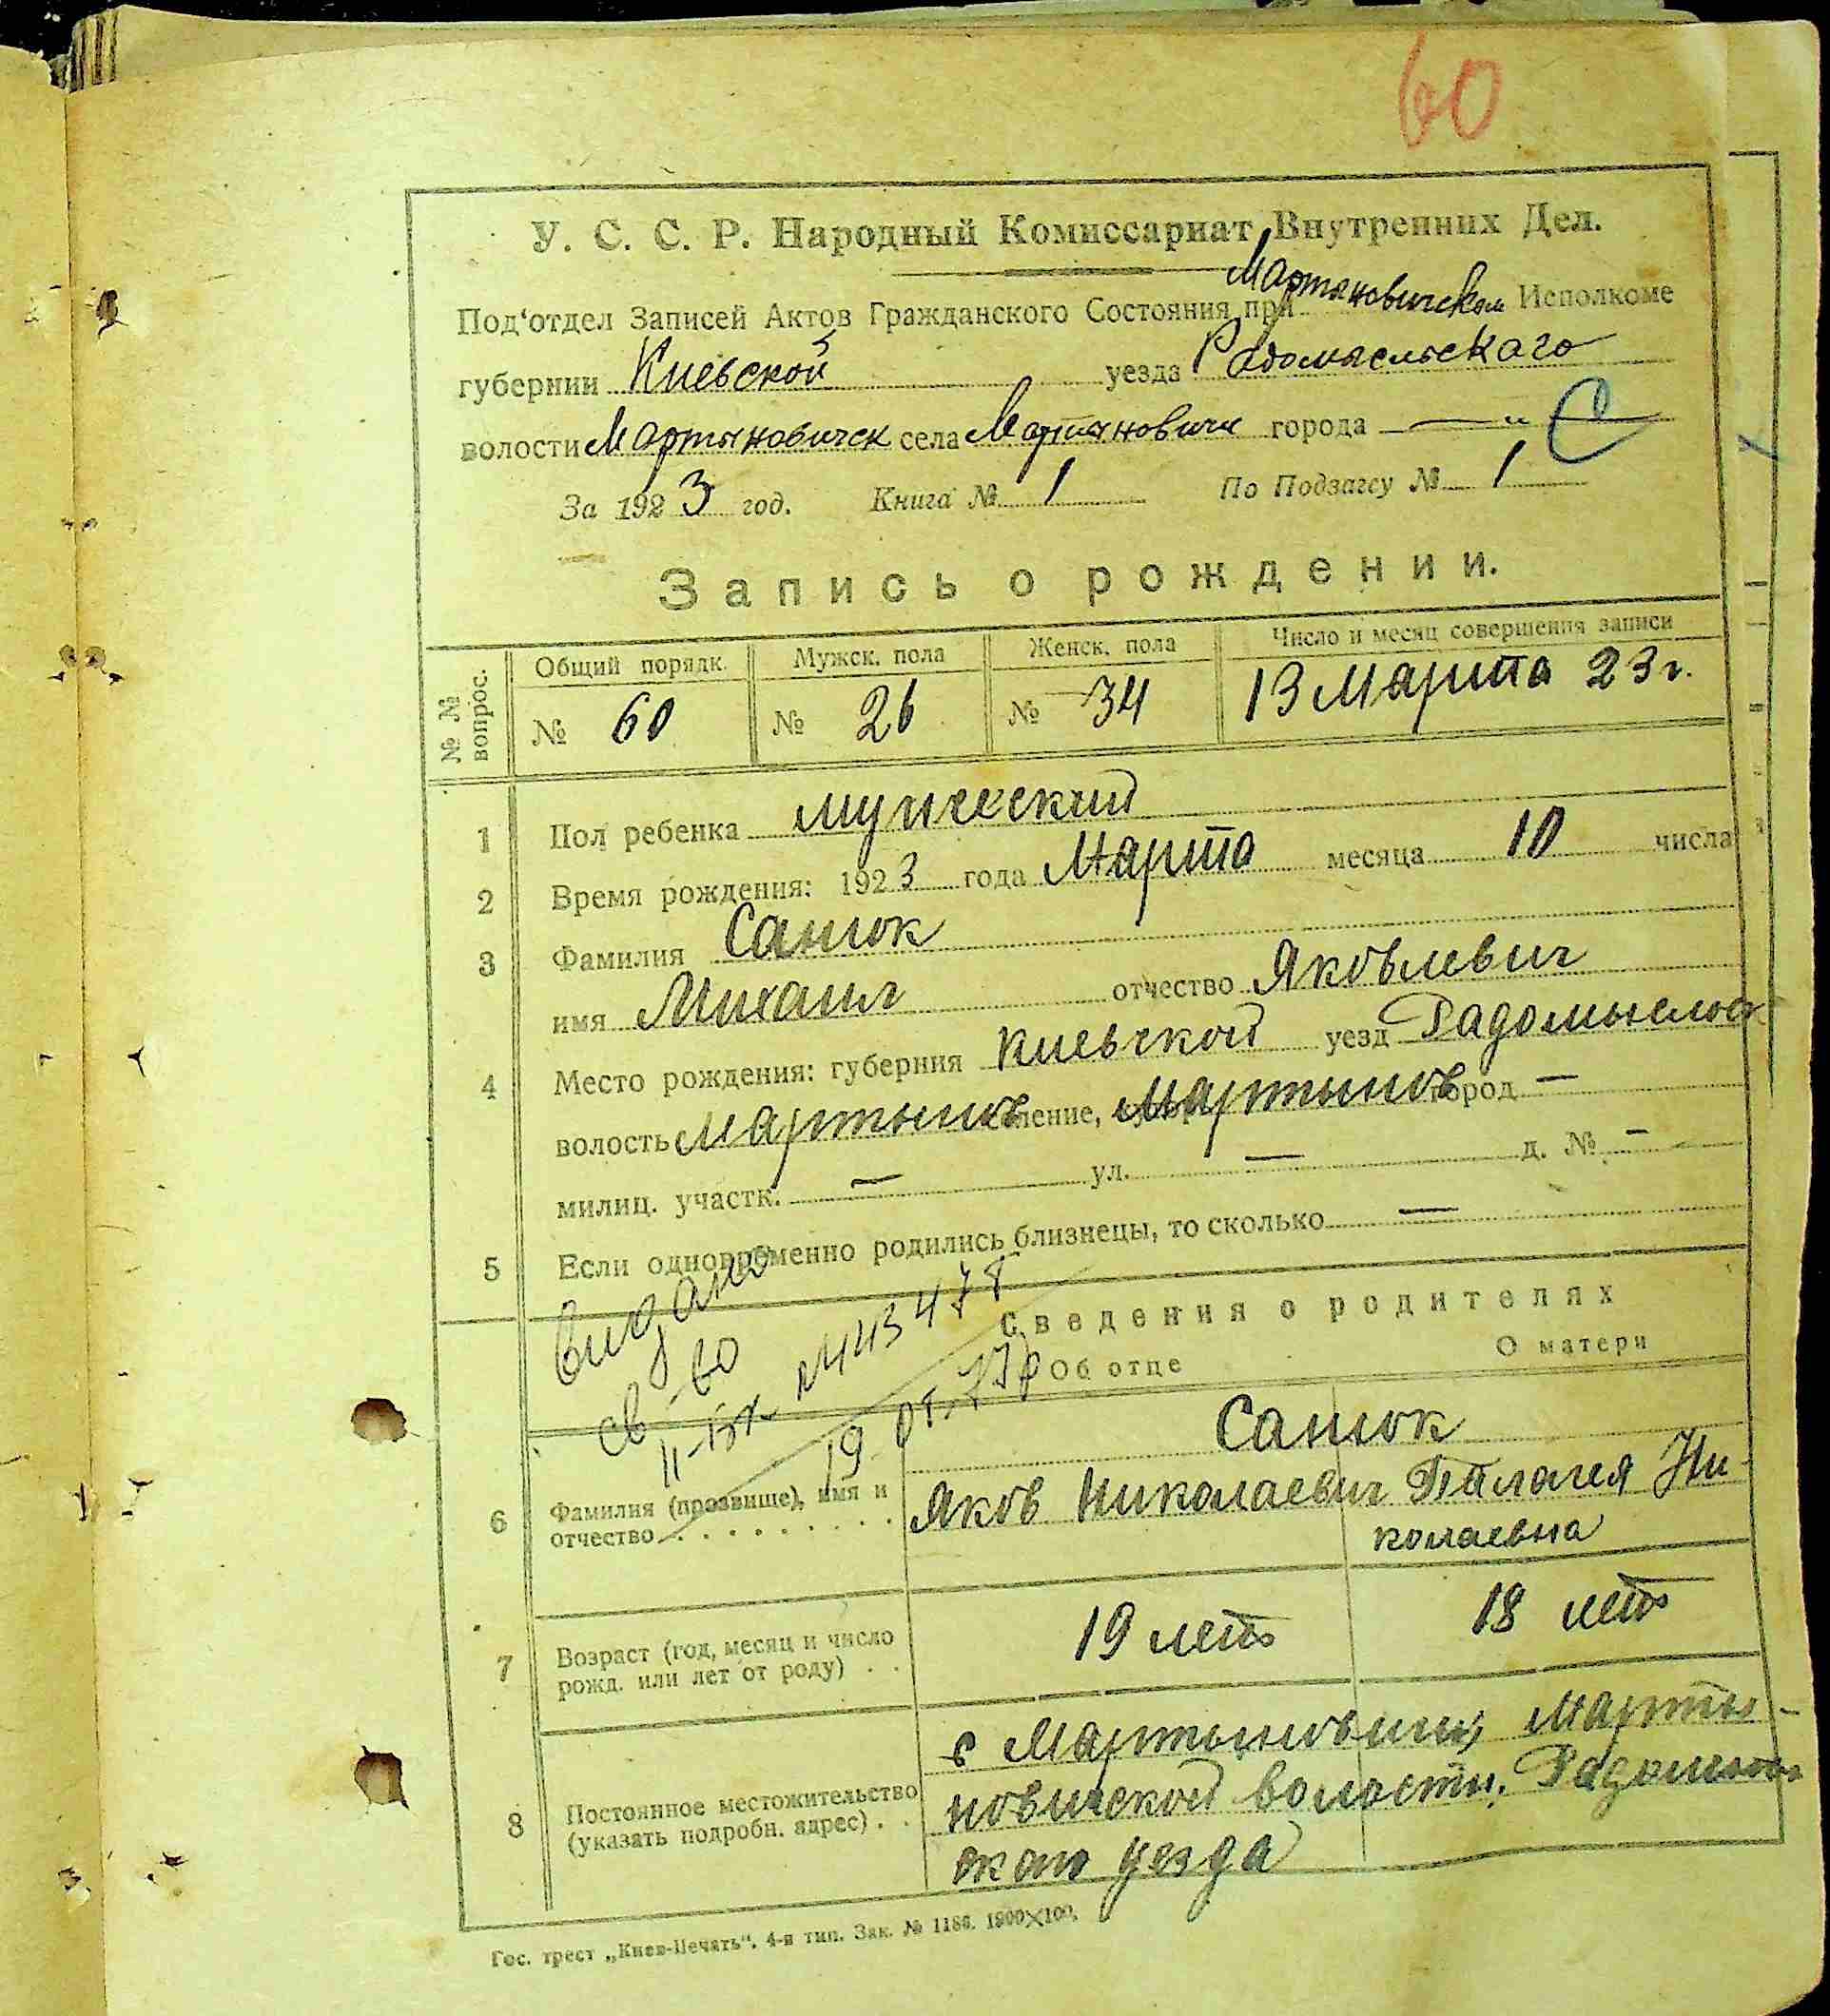 60
У. С. С. Р. Народный Комиссариат Внутренних Дел.
Под'отдел Записей Актов Гражданского Состояния при Мартыновическом Исполкоме
губернии Киевской уезда Радомысльскаго
волости Мартыновическ села Мартыновичи города — "
За 1923 год. Книга № 1 По Подзагсу № 1
Запись о рождении.
№ № вопрос. Общий порядк. Мужск. пола Женск. пола Число и месяц совершения записи
№ 60 № 26 № 34 13 Марта 23 г.
1 Пол ребенка мужеский
2 Время рождения: 1923 года Марта месяца 10 числа
3 Фамилия Санюк
имя Михаил отчество Яковлевич
4 Место рождения: губерния Киевской уезд Радомысльск
волость Мартынов селение, Мартынов город —
милиц. участк. — ул. — д. № —
5 Если одновременно родились близнецы, то сколько —
видано
св-во
II-БК № 443478
19
Сведения о родителях
Об отце О матери
Санюк
6 Фамилия (прозвище), имя и
отчество Яков Николаевич Палагея Ни-
колаевна
7 Возраст (год, месяц и число
рожд. или лет от роду) 19 летъ 18 летъ
8 Постоянное местожительство
(указать подробн. адрес) с Мартыновичи, Марты-
новической волости, Радомысль
скаго уезда
Гос. трест „Киев-Печать". 4-я тип. Зак. № 1186. 1900×100.